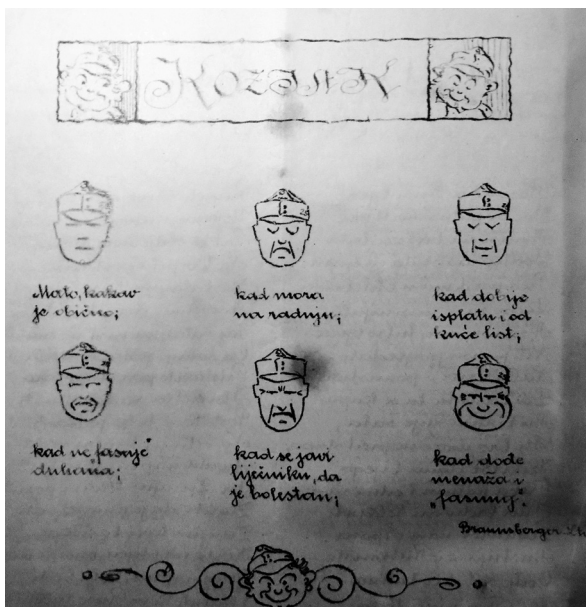 KOZJAK
Mato, kakav
je obično;
kad mora
na radnju;
kad dobije
isplatu i od
kuće list;
kad ne „fasuje"
duhana;
kad se javi
liječniku, da
je bolestan;
kad dođe
menaža i
„fasung".
Braunsberger